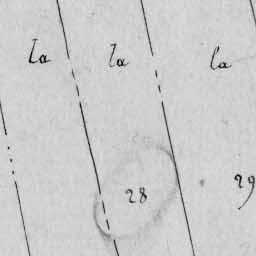 la la la
28 29